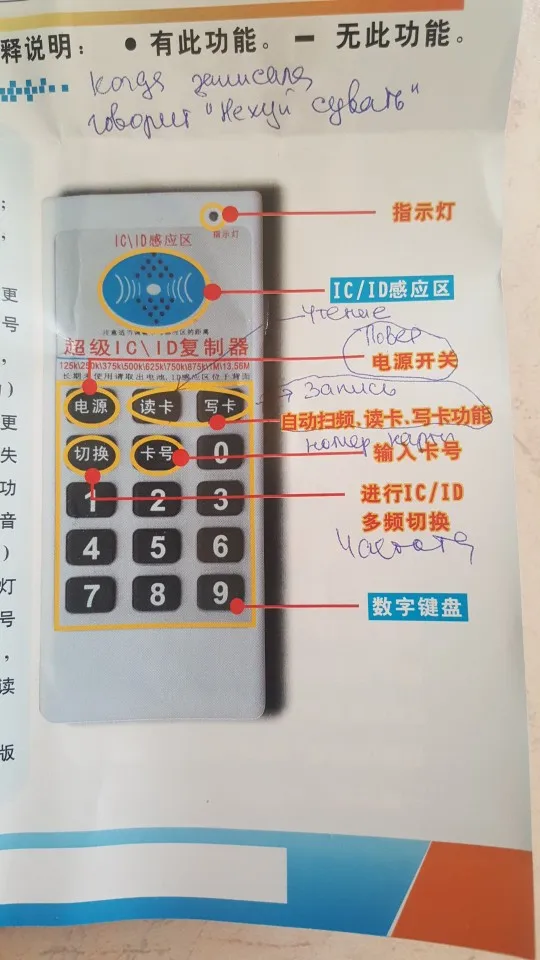 释说明： ● 有此功能。 — 无此功能。
Когда записала
говорит "Нехуй сувать"
；
，
更
号
，
)
更
失
功
音
)
灯
号
，
读
版
指示灯
指示灯
IC\ID感应区
IC/ID感应区
Чтение
超级IC\ID复制器
125k\250k\375k\500k\625k\750k\875k\1M\13.56M
电源开关
Запись
电源 读卡 写卡
自动扫频、读卡、写卡功能
номер карты
切换 卡号 0
输入卡号
1 2 3
进行IC/ID
多频切换
Частота
4 5 6
7 8 9
数字键盘